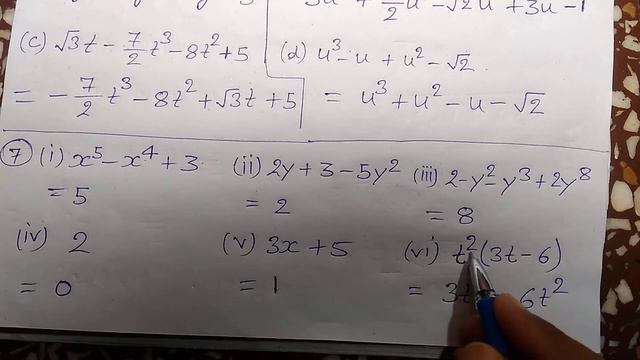 3u + 7/2 u - √2u + 3u - 1
(c) √3t - 7/2 t³ - 8t² + 5
= -7/2 t³ - 8t² + √3t + 5
(d) u³ - u + u² - √2
= u³ + u² - u - √2
7 (i) x⁵ - x⁴ + 3
= 5
(ii) 2y + 3 - 5y²
= 2
(iii) 2 - y² - y³ + 2y⁸
= 8
(iv) 2
= 0
(v) 3x + 5
= 1
(vi) t²(3t - 6)
= 3t 6t²